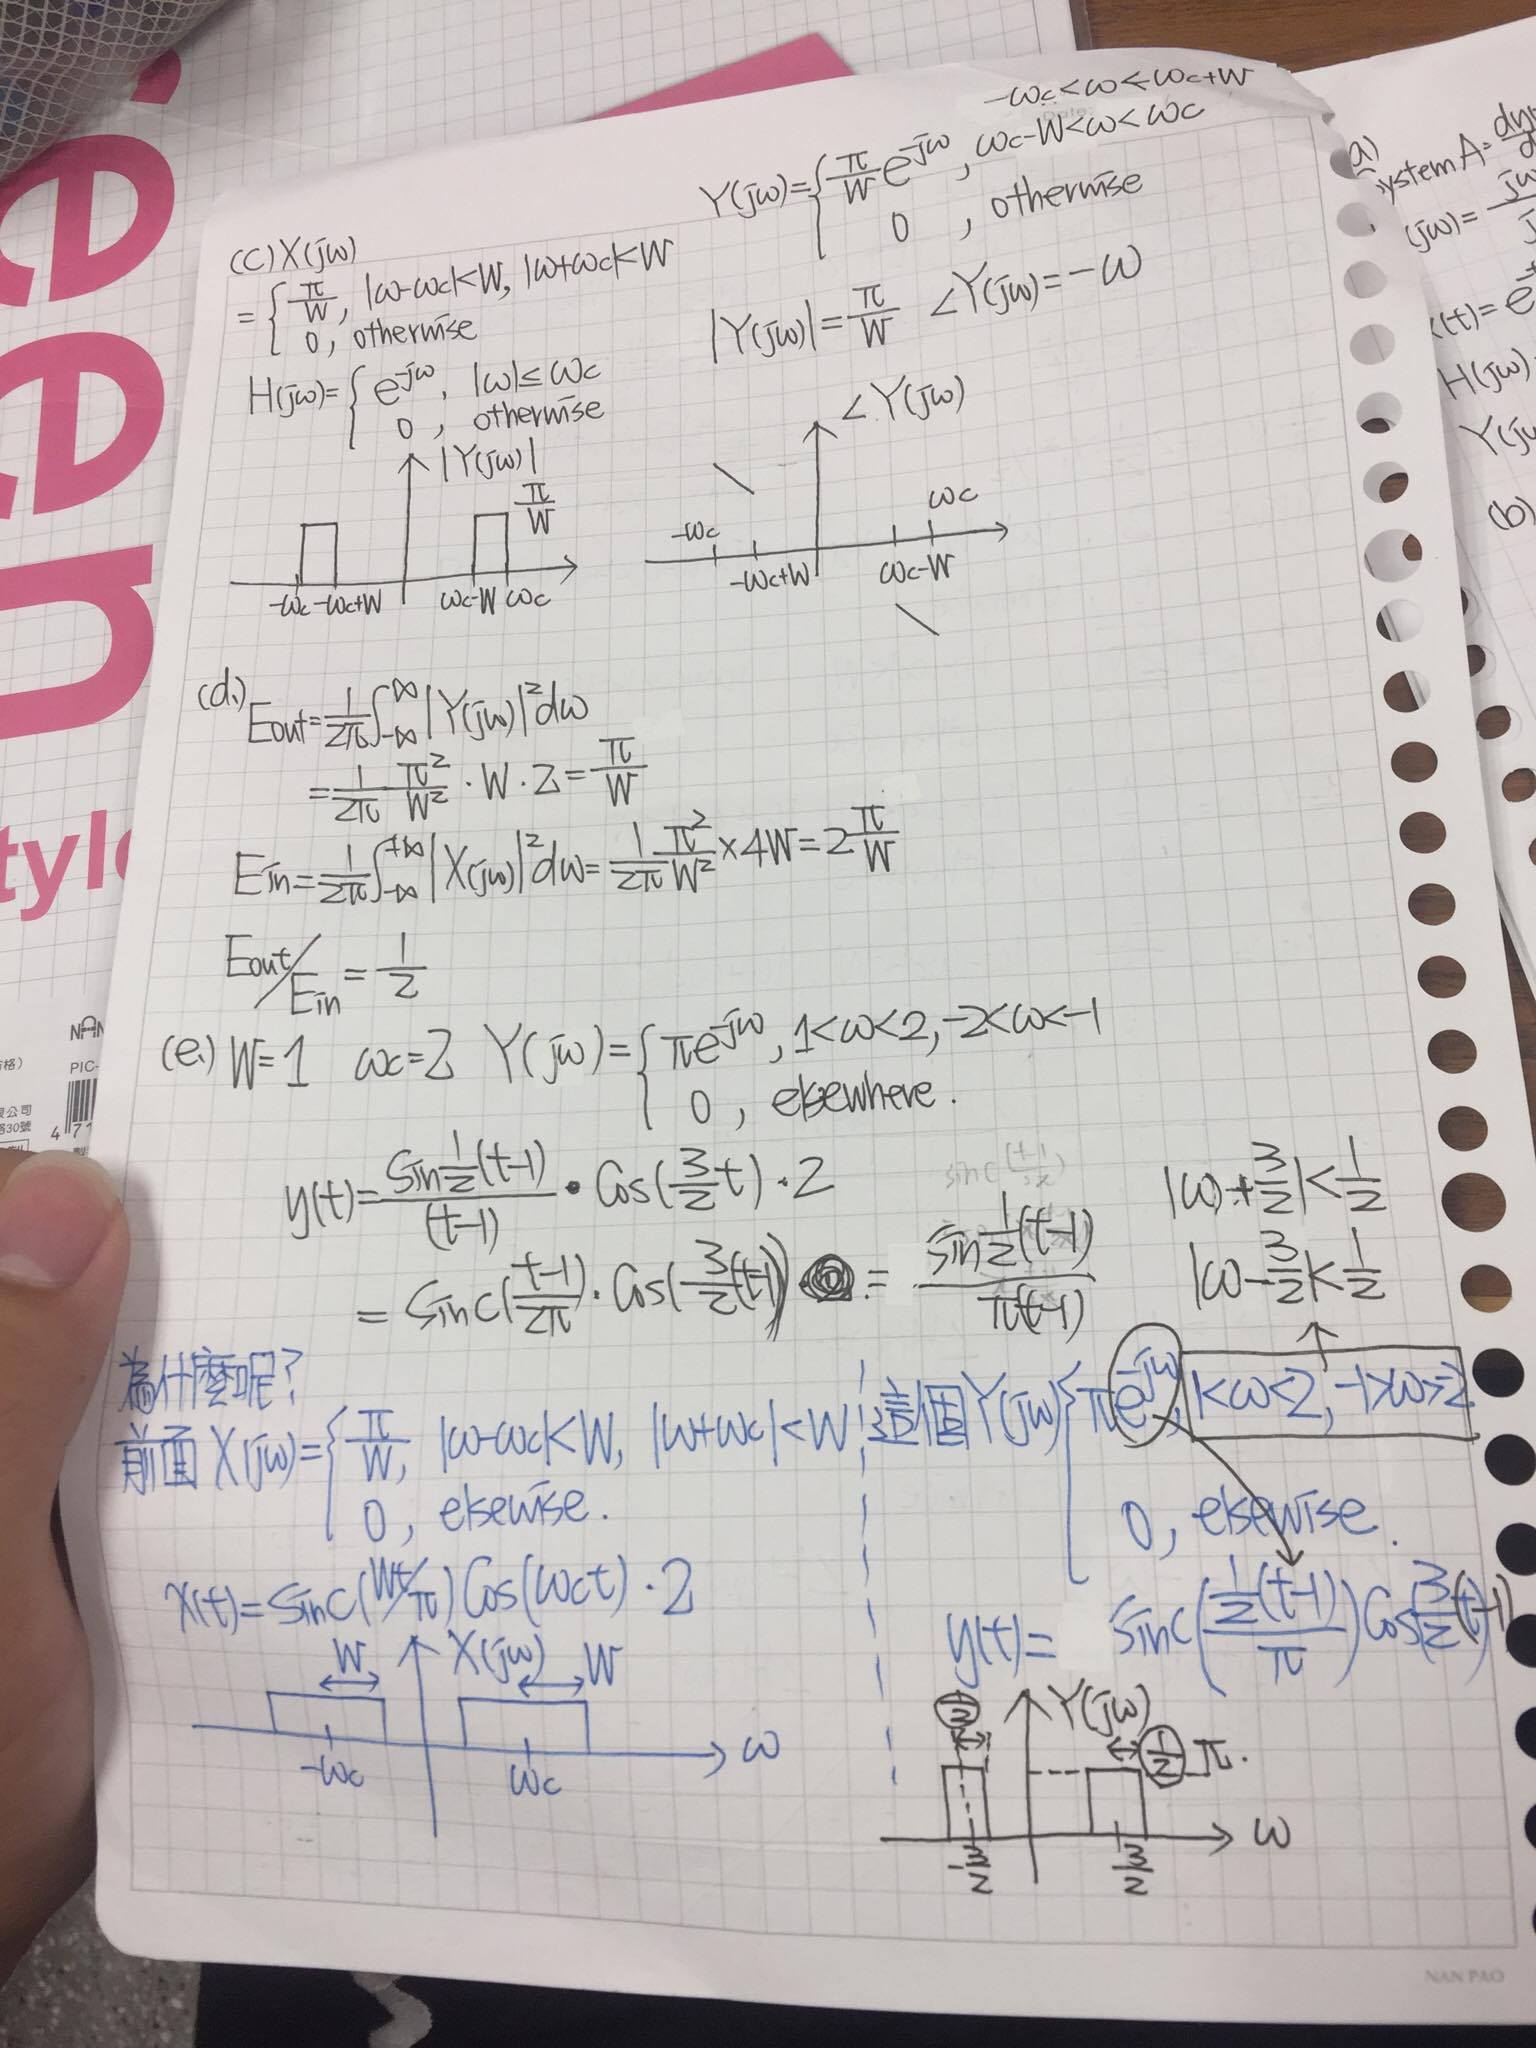 (c) X(jω)
= { π/W, |ω-ωc|<W, |ω+ωc|<W
0, otherwise
H(jω)= { e^-jω, |ω|≤ωc
0, otherwise
-ωc<ω<-ωc+W
Y(jω)= { π/W e^-jω, ωc-W<ω<ωc
0, otherwise
|Y(jω)|=π/W ∠Y(jω)=-ω
|Y(jω)|
π/W
-ωc -ωc+W ωc-W ωc
∠Y(jω)
-ωc -ωc+W ωc-W ωc
(d.) Eout=1/2π ∫_-∞^∞ |Y(jω)|²dω
=1/2π π²/W² · W · 2=π/W
Ein=1/2π ∫_-∞^+∞ |X(jω)|²dω=1/2π π²/W² ×4W=2π/W
Eout/Ein=1/2
(e.) W=1 ωc=2 Y(jω)= { πe^-jω, 1<ω<2, -2<ω<-1
0, elsewhere.
y(t)=sin 1/2(t-1)/(t-1) · Cos(3/2t)·2
= sinc(t-1/2π)·Cos(3/2(t-1)) = sin 1/2(t-1)/π(t-1)
|ω+3/2|<1/2
|ω-3/2|<1/2
為什麼呢?
前面X(jω)= { π/W, |ω-ωc|<W, |ω+ωc|<W
0, elsewise.
x(t)=sinc(Wt/π)Cos(ωct)·2
W X(jω) W
-ωc ωc ω
這個Y(jω) { πe^-jω, 1<ω<2, -1>ω>-2
0, elsewise.
y(t)= sinc(1/2(t-1)/π)Cos 3/2(t-1)
Y(jω)
1/2 π.
-3/2 3/2 ω
NAN PAO
(a)
System A=
H(jω)
Y(jω
(b)
PIC-
限公司
路30號
4 71